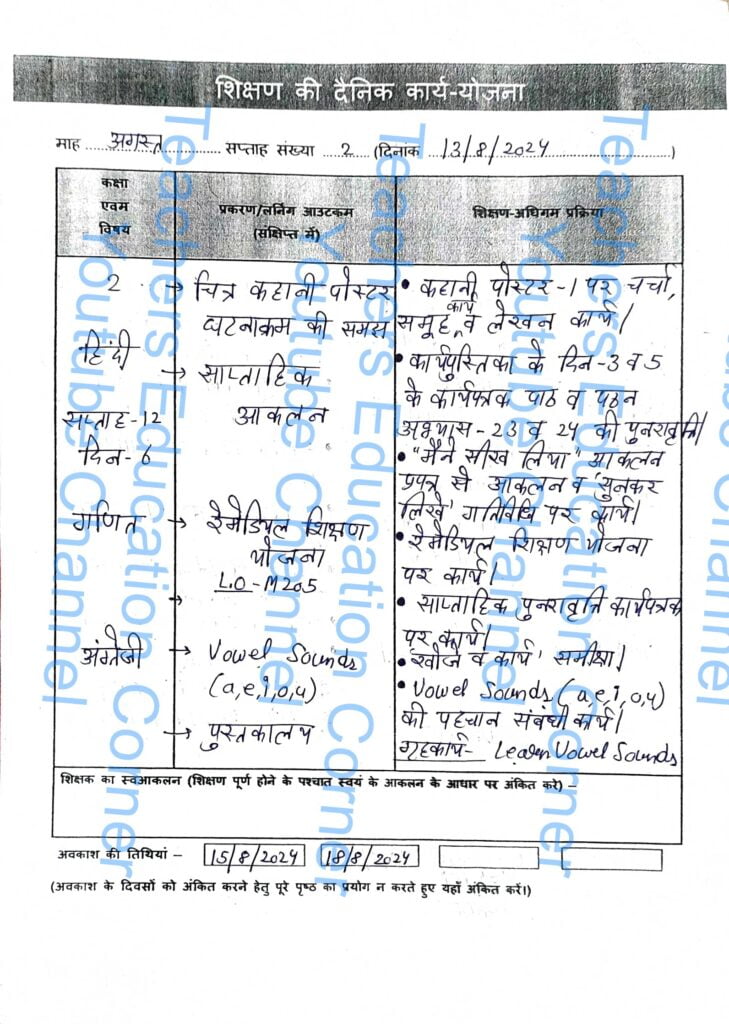 शिक्षण की दैनिक कार्य-योजना
माह ....अगस्त.... सप्ताह संख्या ...2... (दिनांक ..13/8/2024..)
कक्षा
एवम
विषय
प्रकरण/लर्निंग आउटकम
(संक्षिप्त में)
शिक्षण-अधिगम प्रक्रिया
2
हिंदी
सप्ताह-12
दिन-6
→ चित्र कहानी पोस्टर
घटनाक्रम की समझ
→ साप्ताहिक
आकलन
• कहानी पोस्टर-1 पर चर्चा,
समूह कार्य व लेखन कार्य।
• कार्यपुस्तिका के दिन-3 व 5
के कार्यपत्रक पाठ व पठन
अभ्यास-23 व 24 की पुनरावृत्ति।
• "मैंने सीख लिया" आकलन
प्रपत्र से आकलन व 'सुनकर
लिखें' गतिविधि पर कार्य।
गणित
→ रेमेडियल शिक्षण
योजना
L.O-M205
→
• रेमेडियल शिक्षण योजना
पर कार्य।
• साप्ताहिक पुनरावृत्ति कार्यपत्रक
पर कार्य।
• खोजें व कार्य' समीक्षा।
अंग्रेजी
→ Vowel Sounds
(a,e,i,o,u)
→ पुस्तकालय
• Vowel Sounds (a,e,i,o,u)
की पहचान संबंधी कार्य।
गृहकार्य- Learn Vowel Sounds
शिक्षक का स्वआकलन (शिक्षण पूर्ण होने के पश्चात स्वयं के आकलन के आधार पर अंकित करे) –
अवकाश की तिथियां – 15/8/2024 18/8/2024
(अवकाश के दिवसों को अंकित करने हेतु पूरे पृष्ठ का प्रयोग न करते हुए यहाँ अंकित करें।)
Teachers Education Corner
Youtube Channel
Teachers Education Corner
Youtube Channel
Teachers Education Corner
Youtube Channel